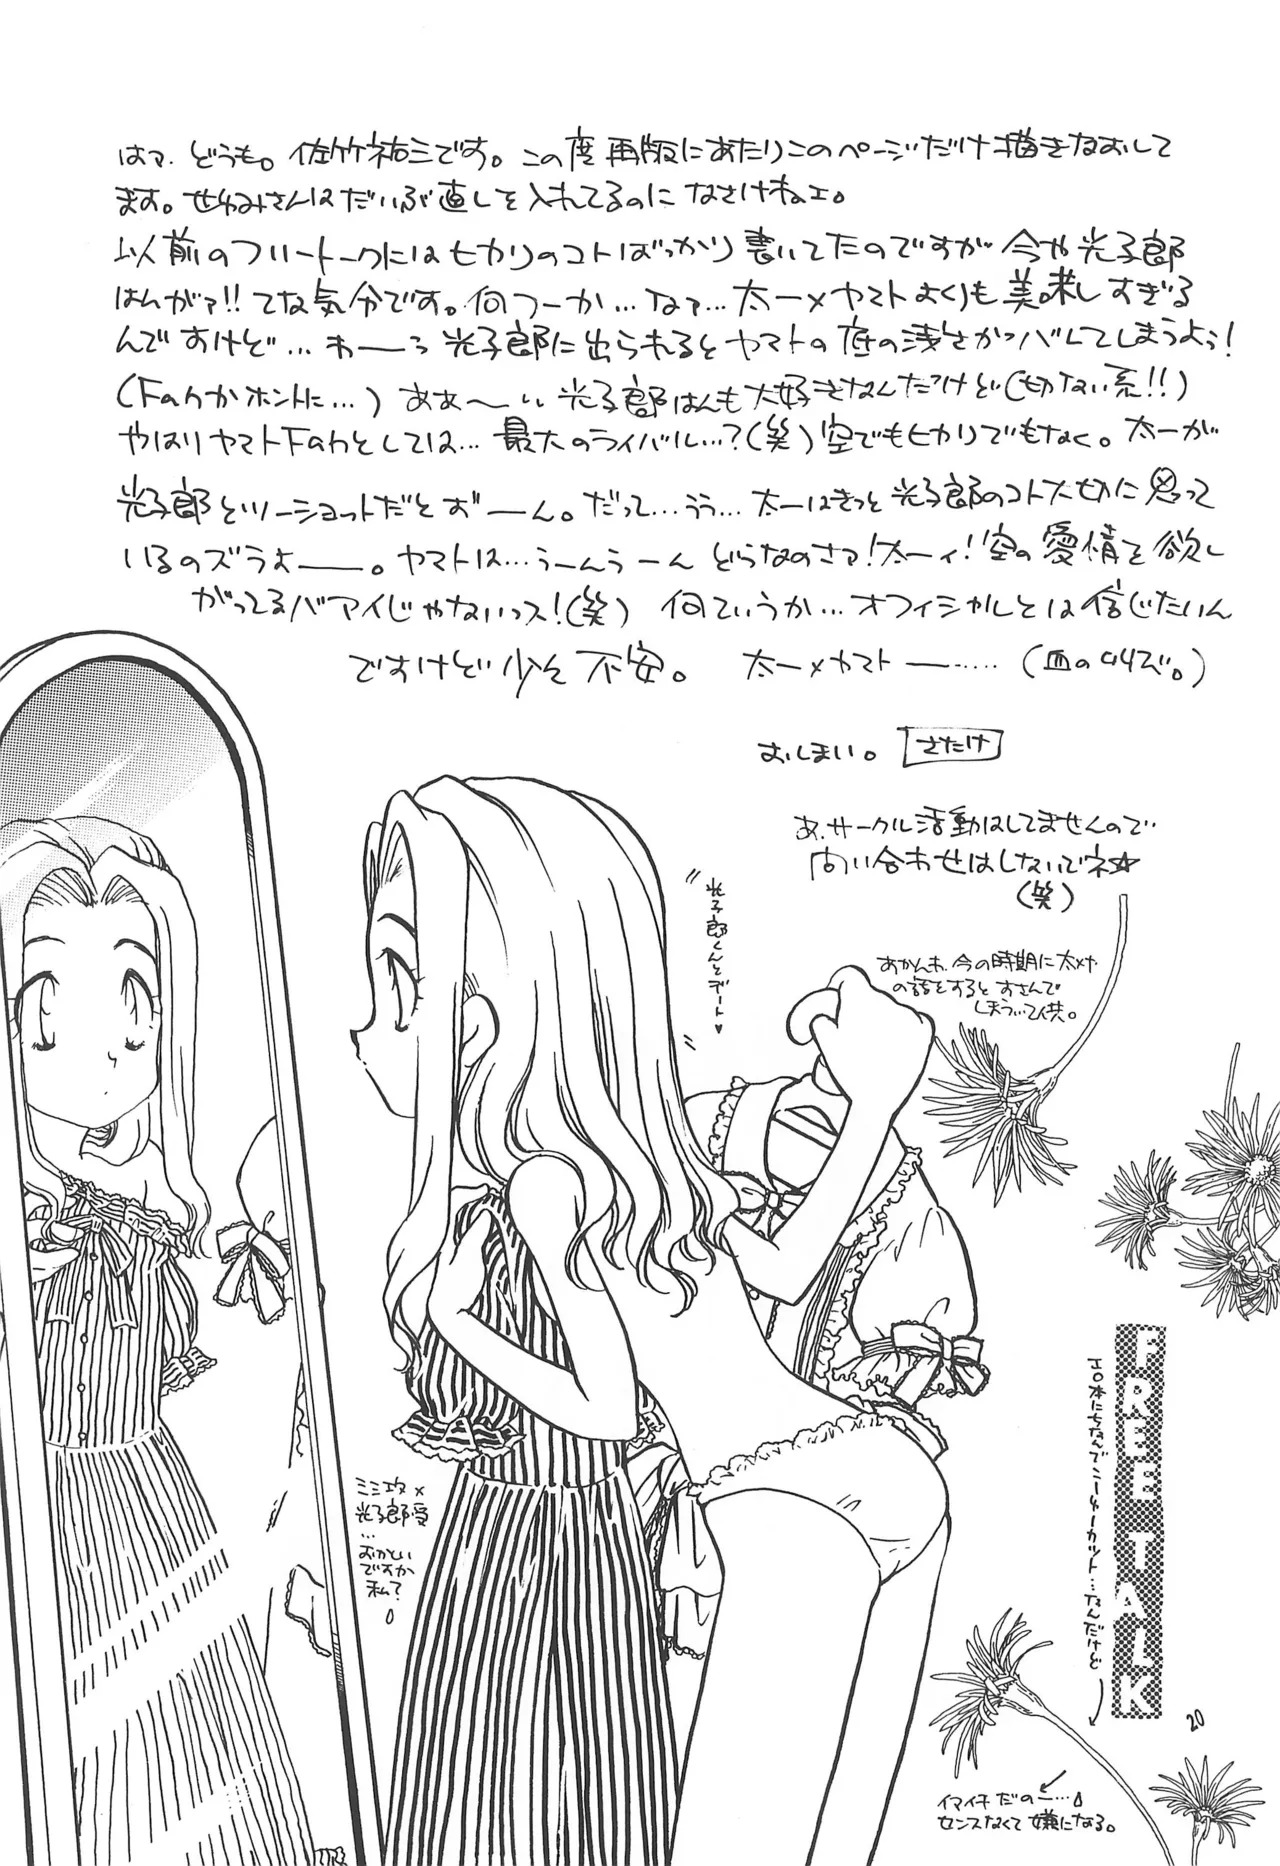 はァ、どうも。佐竹祐三です。この度再版にあたりこのページだけ描きなおして
ます。せゆみさんはだいぶ直しを入れてるのになさけねェ。
以前のフリートークにはヒカリのコトばっかり書いてたのですが今や光子郎
はんがァ!!てな気分です。何つーか…なァ…太一×ヤマトよりも美味しすぎる
んですけど…わーっ光子郎に出られるとヤマトの底の浅さがバレてしまうよぅ!
(Fanかホントに…)ああ〜い光子郎はんも大好きなんだけど(切ない系!!)
やはりヤマトFanとしては…最大のライバル…?(笑)空でもヒカリでもなく。太一が
光子郎とツーショットだとずーん。だって…うぅ…太一はきっと光子郎のコト大切に思って
いるのズラよー。ヤマトは…うーんうーんどうなのさァ!太一ィ!空の愛情を欲し
がってるバアイじゃないっス!(笑) 何ていうか…オフィシャルとは信じたいん
ですけど少々不安。 太一×ヤマトー……(血の叫び。)
おしまい。 さたけ
あ、サークル活動はしてませんので
問い合わせはしないでネ☆
(笑)
あかんわ、今の時期に太×ヤ
の話をするとすさんで
しまういて供。
光子郎くんとデート♥
ミミ攻×
光子郎受
…
おかしい
ですか
私?
FREE TALK
エロ本にちなんでこーゆーカット…なんだけど
イマイチだのー…
センスなくて嫌になる。
20